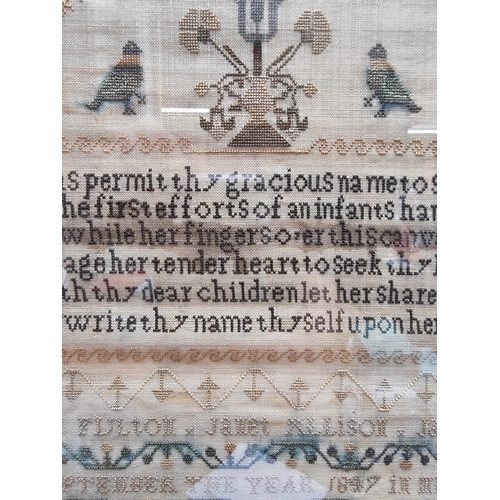 us permit thy gracious name to s
he first efforts of an infants han
while her fingers o.er this canv
age her tender heart to seek thy
th thy dear children let her share
write thy name thyself upon her
FULTON x Janet ALLISON x
EPTEMBER THE YEAR 1847 in